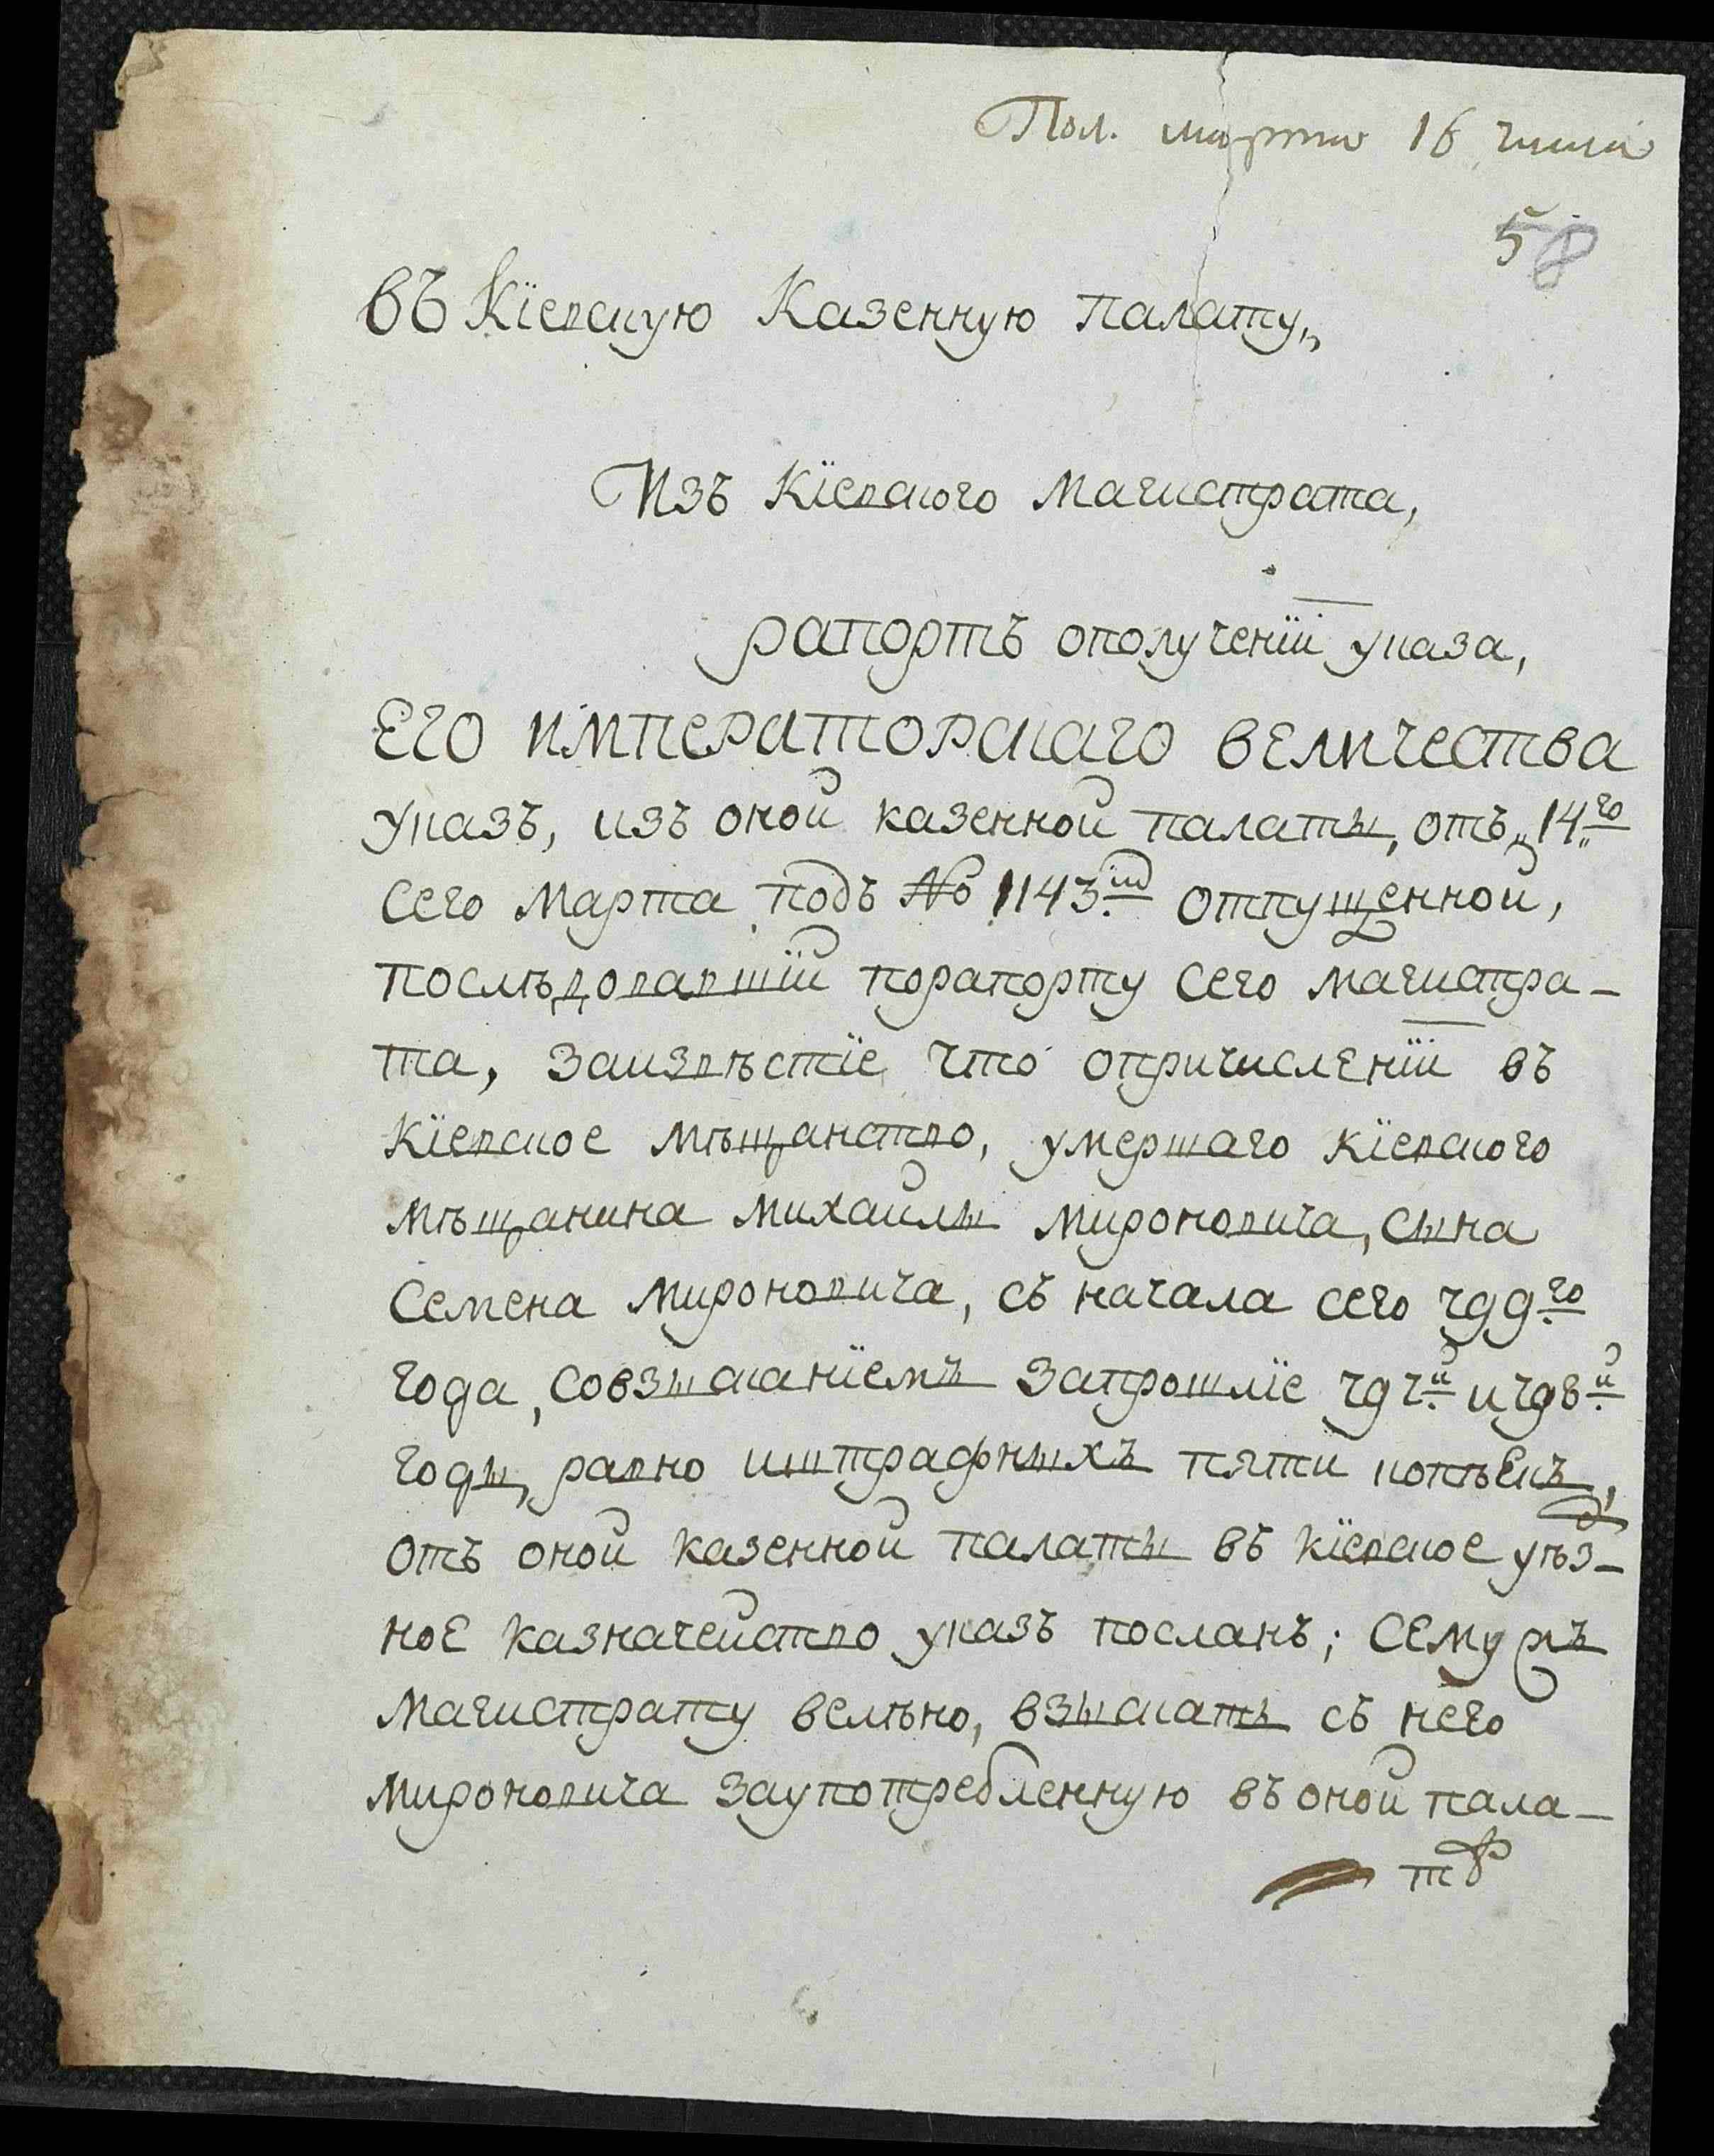 Пол. марта 16 числа
58
Въ Кїевскую Казенную палату„
Изъ Кїевского Магистрата,
рапортъ ополученїи указа,
ЕГО ИМПЕРАТОРСКАГО ВЕЛИЧЕСТВА
указъ, изъ оной казенной палаты, отъ „14„го
сего Марта подъ № 1143.мъ отпущенной,
последовавшїй порапорту сего магистра-
та, заизвѣстїе что опричисленїи въ
Кїевское мѣщанство, умершаго кїевского
мѣщанина михайлы мироновича, сына
Семена мироновича, съ начала сего 799.го
года, совзысканїемъ запрошлїе 797.й и 798.й
годы, равно иштрафныхъ пяти копѣекъ,
отъ оной казенной палаты въ кїевское уѣзд-
ное казначейство указъ посланъ; сему жъ
магистрату велѣно, взыскать съ него
мироновича заупотребленную въ оной пала-
тѣ